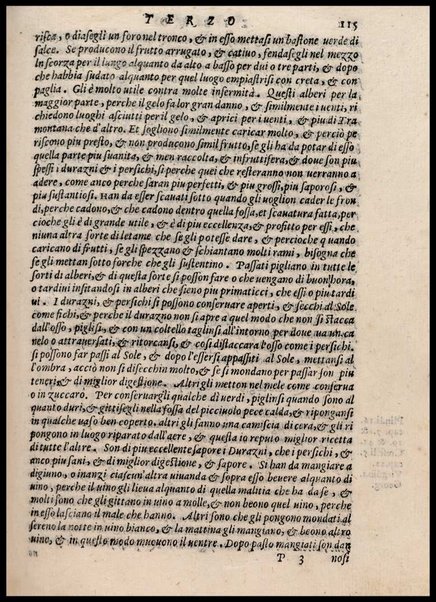 TERZO 115
risca, o diasegli un foro nel tronco, & in esso mettasi un bastone uerde di
salce. Se producono il frutto arrugato, & catiuo, fendasegli nel mezzo
la scorza per il lungo alquanto da alto a basso per dui o tre parti, & dopo
che habbia sudato alquanto per quel luogo empiastrisi con creta, & con
paglia. Gli è molto utile contra molte infermità. Questi alberi per la
maggior parte, perche il gelo fa lor gran danno, & similmente i uenti, ri
chiedono luoghi asciutti per il gelo, & aprici per i uenti, & piu di Tra
montana che d'altro. Et sogliono similmente caricar molto, & perciò pe
riscono piu presto, & non producono simil frutto, se gli ha da potar di esso
quella parte piu suanita, & men raccolta, & infruttifera, & doue son piu
spessi i durazni & i persichi, si perche quei che resteranno non uerranno a
adere, come anco perche saran piu perfetti, & piu grossi, piu saporosi, &
piu sustantiosi. Han da esser scauati sotto quando gli uoglion cader le fron
di, perche cadono, & che cadono dentro quella fossa, et scauatura fatta, per
cioche gli è di grande utile, & è di piu eccellenza, & profitto per essi, che
niuna altra sorte di letame che se gli potesse dare, & percioche quando
caricano di frutti, se gli spezzano & schiantano molti rami, bisogna che
se gli mettan sotto forche che gli sustentino. Passati pigliano in tutte le
sorti di alberi, & di questa sorte si posson fare o che uengano di buon'hora,
o tardiui insitandosi in alberi che sieno piu primaticci, che essi o piu tardi
ui. I durazni, & persichi si possono conseruare aperti, & secchi al Sole
come fichi, & perche il durazno non si apre a quel modo che non si stacca
dall'osso, piglisi, & con un coltello taglinsi all'intorno per doue ua un ca
nelo o attrauersati, & ritorcansi, & così distaccara l'osso come i persichi.
si possono far passi al Sole, & dopo l'essersi appassiti al Sole, mettansi al
l'ombra, acciò non si disecchin molto, & se si mondano per passar son piu
teneri, & di miglior digestione. Altri gli metton nel mele come conserua
o in zuccaro. Per conseruargli qualche dì uerdi, piglinsi quando sono al
quanto duri, & gittisegli nella fossa del picciuolo pece calda, & ripongansi
in qualche uaso ben coperto. altri gli fanno una camiscia di cera, & gli ri
pongono in luogo riparato dall'aere, & questa io reputo miglior ricetta
di tutte l'altre. Son di piu eccellente sapore i Durazni, che i persichi, &
anco piu sani, & di miglior digestione, & sapore. Si han da mangiare a
digiuno, o inanzi ciascun'altra uiuanda & sopra essi beuere alquanto di
uino, perche il uino gli lieua alquanto di quella malitia che ha da se, &
molti sono che gli gittano in a molle, & non beono quel uino, perche
in esso lasciano il male che hanno. Altri sono che gli pongono mondati al
sereno la notte in uino bianco, & la mattina gli mangiano, & beono altro
uino, & in questo modo muouono il uentre. Dopo pasto mangiati son dan
P 3 nosi